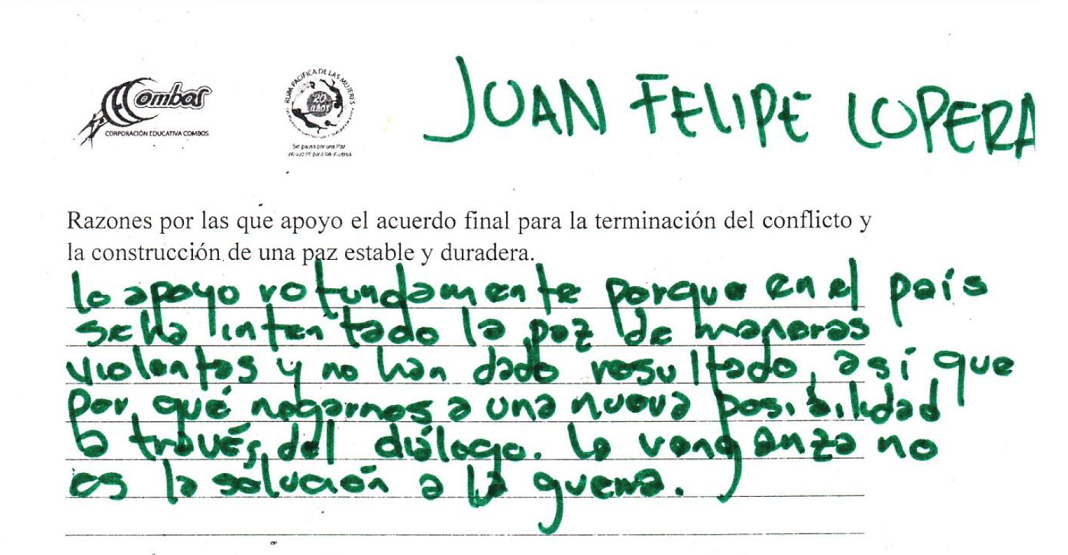 Combos
CORPORACIÓN EDUCATIVA COMBOS
RUTA PACÍFICA DE LAS MUJERES
20 años
JUAN FELIPE LOPERA
Razones por las que apoyo el acuerdo final para la terminación del conflicto y
la construcción de una paz estable y duradera.
lo apoyo rotundamente porque en el país
se ha intentado la paz de maneras
violentas y no han dado resultado, así que
por qué negarnos a una nueva posibilidad
a través del diálogo. La venganza no
es la solución a la guerra.